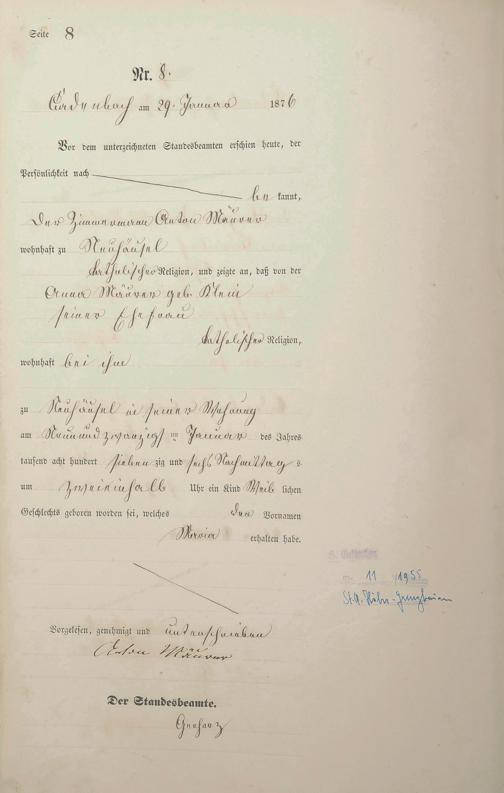 Seite 8
Nr. 8.
Cadenbach am 29. Januar 1876
Vor dem unterzeichneten Standesbeamten erschien heute, der
Persönlichkeit nach
be kannt,
der Zimmermann Anton Mäurer
wohnhaft zu Neuhäusel
katholischer Religion, und zeigte an, daß von der
Anna Mäurer geb. Klein
seiner Ehefrau
katholischer Religion,
wohnhaft bei ihm
zu Neuhäusel in seiner Wohnung
am Neunundzwanzigsten Januar des Jahres
tausend acht hundert sieben zig und sechs Nachmittags
um zweieinhalb Uhr ein Kind Weib lichen
Geschlechts geboren worden sei, welches den Vornamen
Maria erhalten habe.
Vorgelesen, genehmigt und unterschrieben
Anton Mäurer
Der Standesbeamte.
11 1955
St.A.